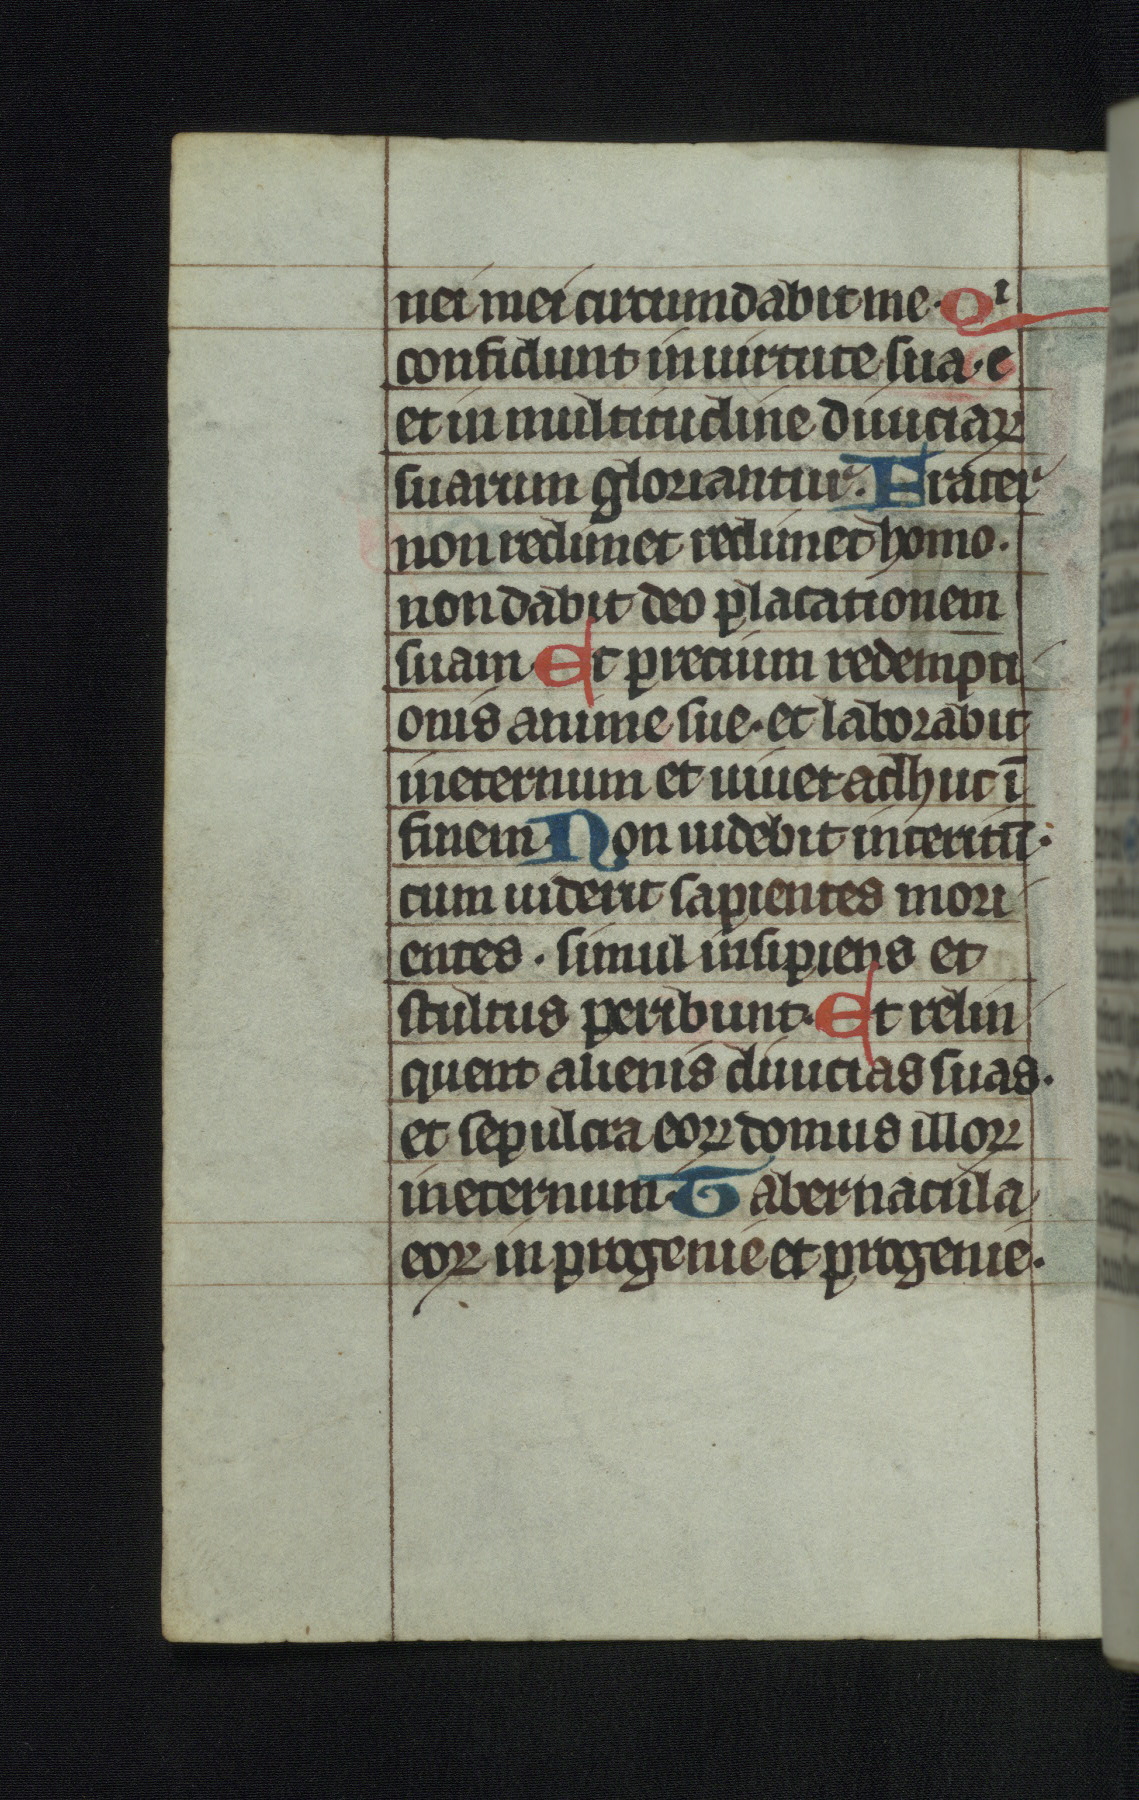 nei mei circumdabit me. Qͥ
confidunt in uirtute sua. e
et in multitudine diuiciaꝝ
suarum gloriantur. Frater
non redimet redimet homo.
non dabit deo placationem
suam. Et precium redempti
onis anime sue. et laborabit
ineternum et uiuet adhuc ī
finem. Non uidebit interitū.
cum uiderit sapientes mori
entes. simul insipiens et
stultus peribunt. Et relin
quent alienis diuicias suas.
et sepulcra eoꝝ domus illoꝝ
ineternum. Tabernacula
eoꝝ in progenie et progenie.